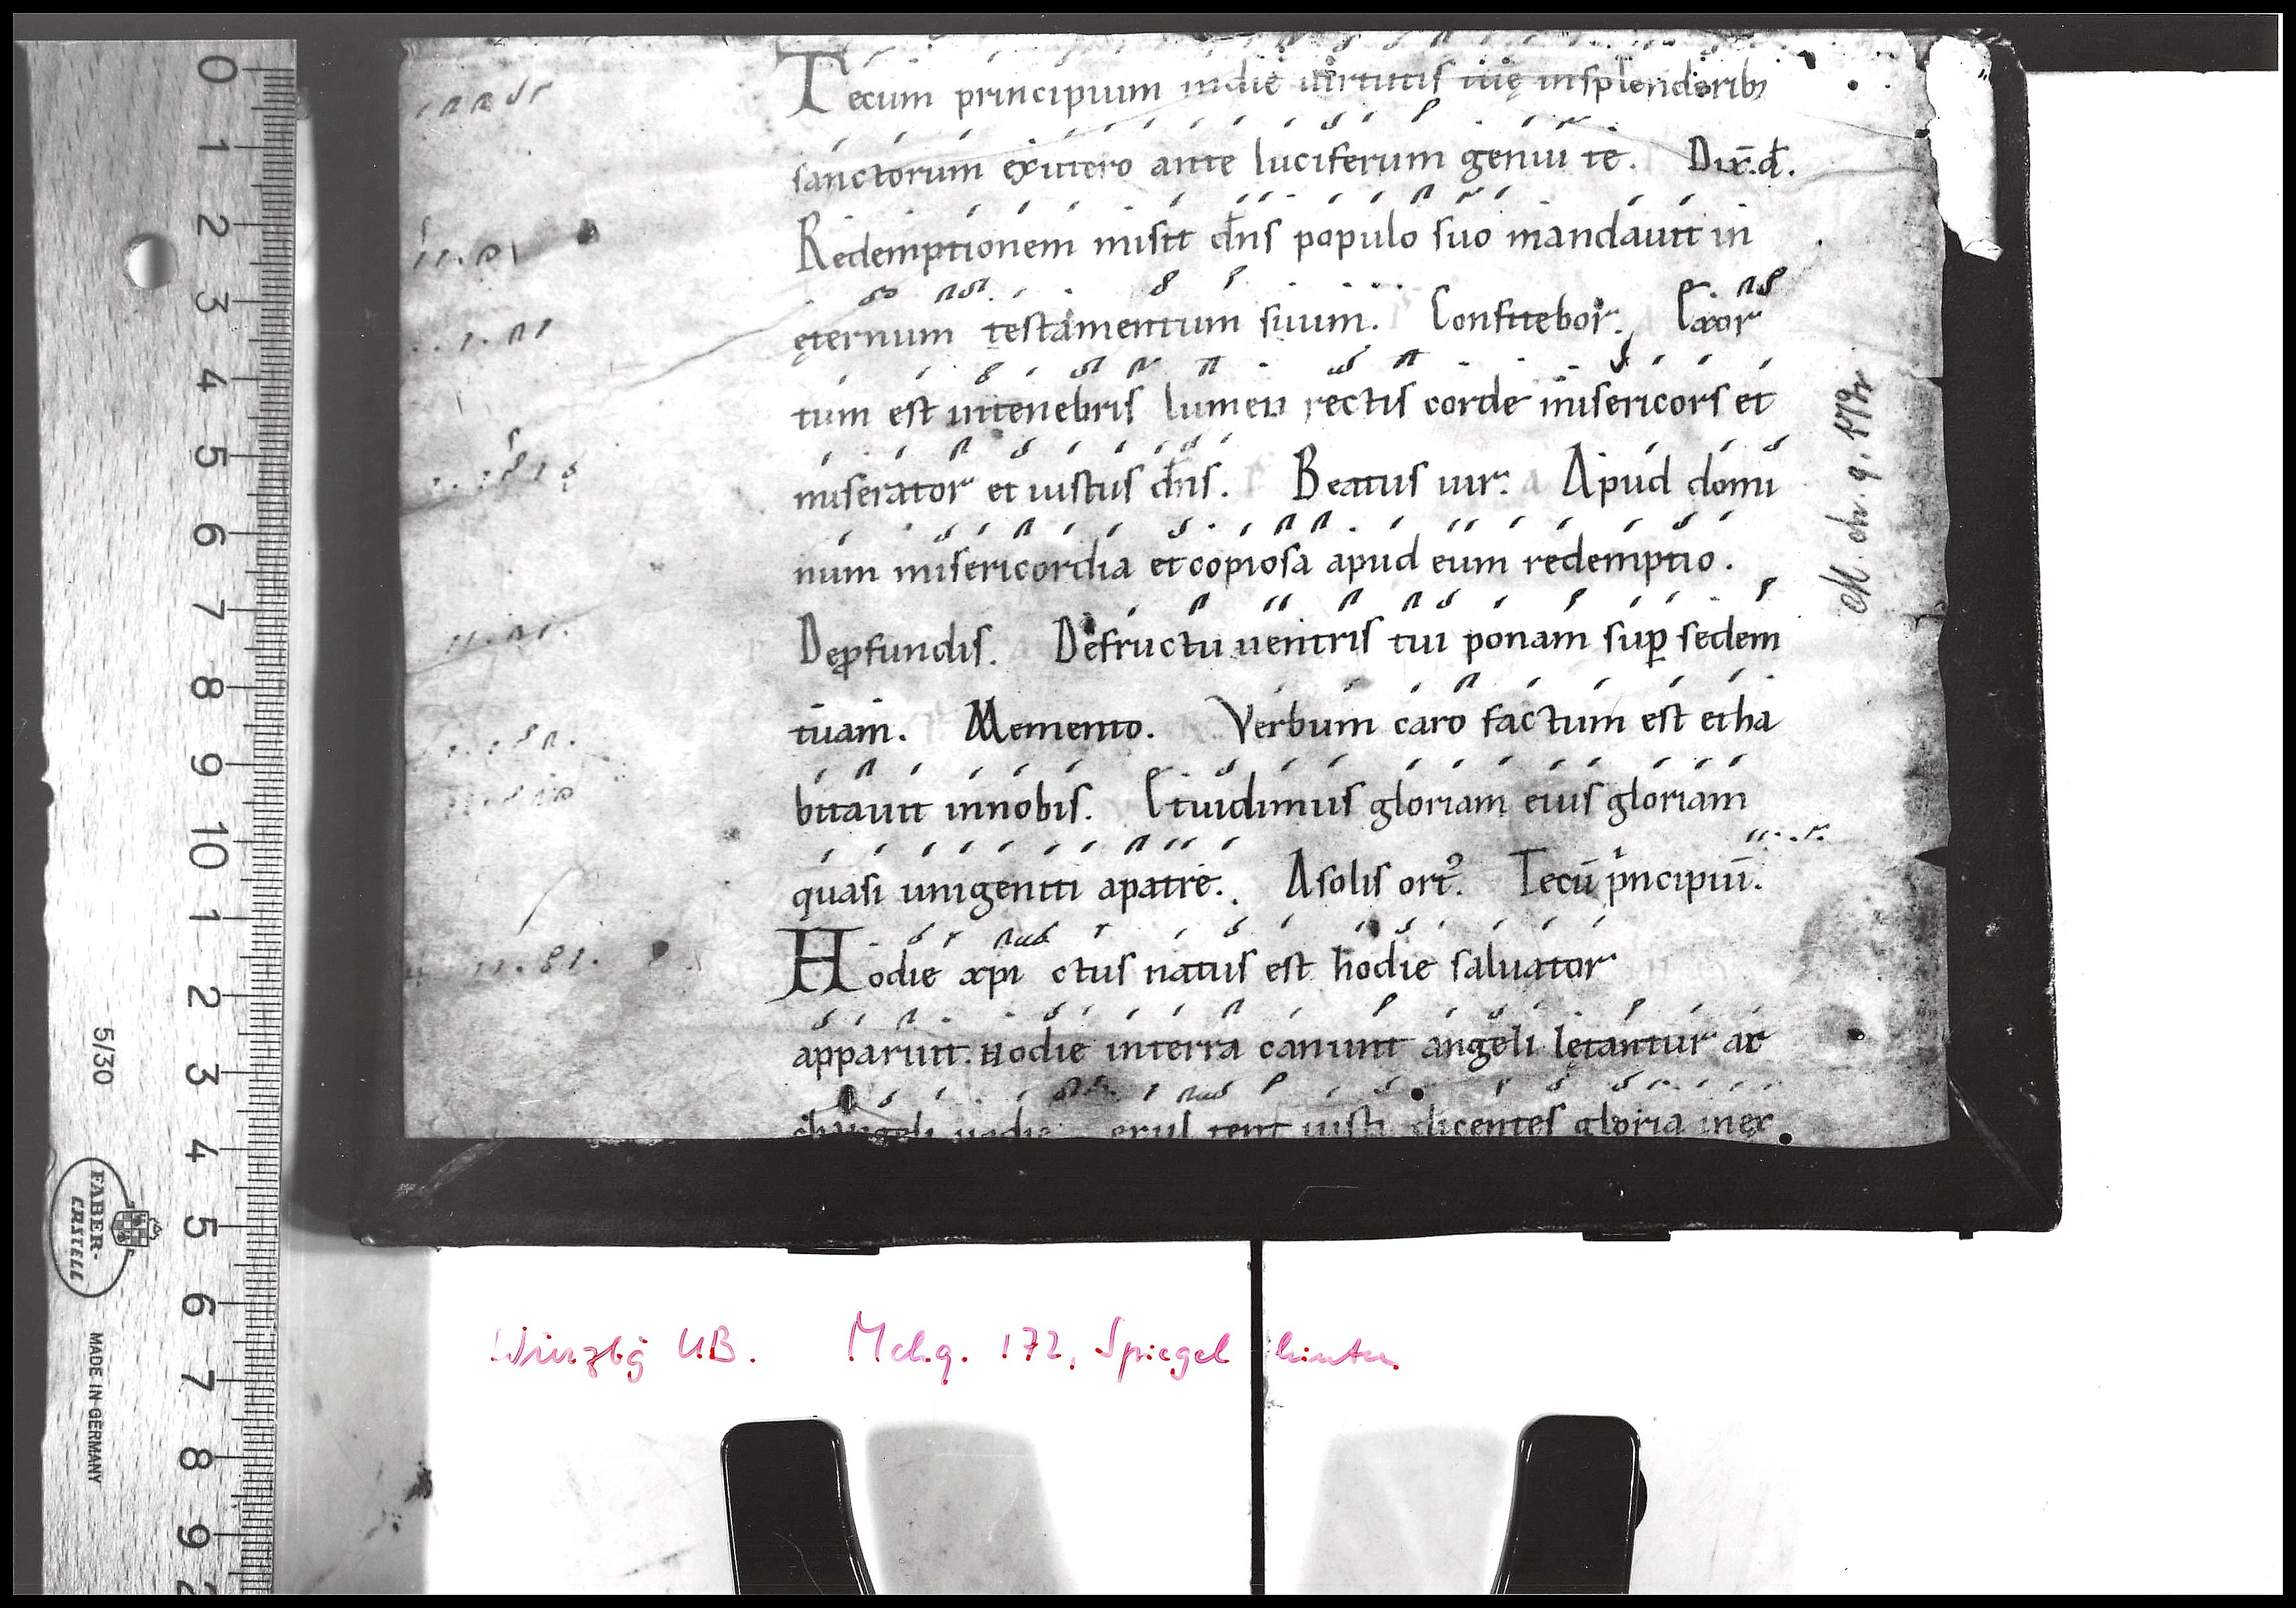 Tecum principium indie uirtutis tuę insplendoribꝫ
sanctorum exutero ante luciferum genui te. Dix̄.d̄.
Redemptionem misit dn̄s populo suo mandauit in
ęternum testamentum suum. Confitebor. Exor
tum est intenebris lumen rectis corde misericors et
miserator et iustus dn̄s. Beatus uir. Apud domi
num misericordia et copiosa apud eum redemptio.
Deꝓfundis. Defructu uentris tui ponam suꝑ sedem
tuam. Memento. Verbum caro factum est etha
bitauit innobis. Etuidimus gloriam eius gloriam
quasi unigeniti apatre. Asolis ortꝰ. Tecū pͥncipiū.
Hodie xpi ctus natus est hodie saluator
apparuit. Hodie interra canunt angeli lętantur ar
changeli hodie exul tent iusti dicentes gloria inex
M. ch. q. 172
Würzbg UB. M ch. q. 172, Spiegel hinten
0 1 2 3 4 5 6 7 8 9 10 1 2 3 4 5 6 7 8 9
5/30
FABER-CASTELL
MADE IN GERMANY